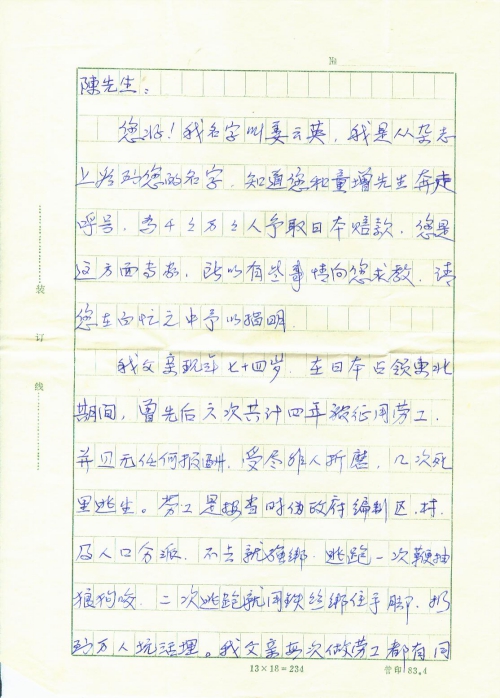 №
陳先生:
您好!我名字叫姜云英,我是从杂志
上看到您的名字,知道您和童增先生奔走
呼号,为千々万々人争取日本赔款,您是
这方面专家,所以有些事情向您求教,请
您在百忙之中予以指明。
我父亲现年七十四岁,在日本占领东北
期间,曾先后六次共计四年被征用劳工,
并且无任何报酬,受尽非人折磨,几次死
里逃生。劳工是按当时伪政府编制区、村、
及人口分派,不去就强绑,逃跑一次鞭抽
狼狗咬,二次逃跑就用铁丝绑住手脚,扔
到万人坑活埋。我父亲每次做劳工都有同
装订线
13×18=234
管印 83.4